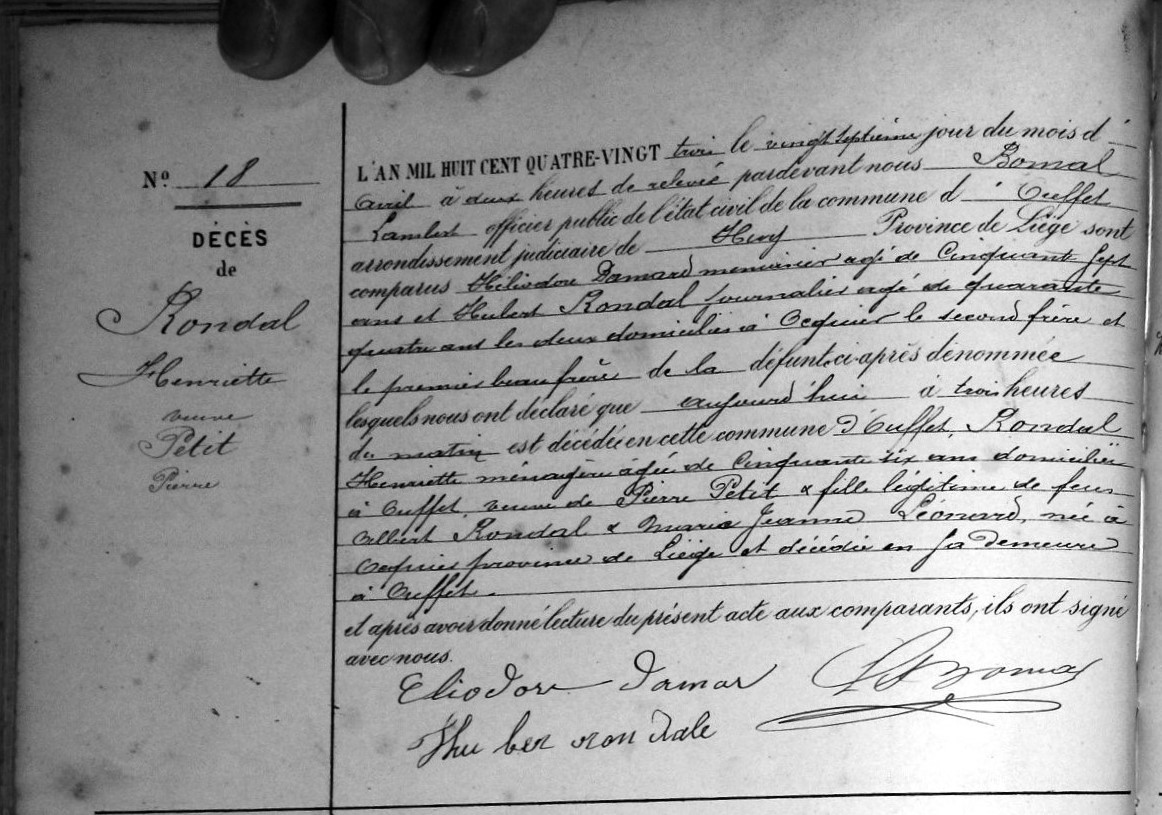 N° 18
DÉCÈS
de
Rondal
Henriette
veuve
Petit
Pierre
L'AN MIL HUIT CENT QUATRE-VINGT trois le vingt septième jour du mois d'
avril à deux heures de relevée pardevant nous Bomal
Lambert officier public de l'état civil de la commune d' Ouffet
arrondissement judiciaire de Huy Province de Liège sont
comparus Héliodore Damard menuisier agé de Cinquante Sept
ans et Hubert Rondal Journalier agé de quarante
quatre ans les deux domiciliés à Ocquier le second frère et
le premier beau frère de la défunte ci-après dénommée
lesquels nous ont déclaré que aujourd'hui à trois heures
du matin est décédée en cette commune d'Ouffet, Rondal
Henriette ménagère âgée de Cinquante six ans domiciliée
à Ouffet, veuve de Pierre Petit & fille légitime de feus
Albert Rondal & Marie Jeanne Léonard, née à
Ocquier province de Liège et décédée en sa demeure
à Ouffet.
et après avoir donné lecture du présent acte aux comparants, ils ont signé
avec nous.
Eliodore damar LBomal
Hhu ber ron dale